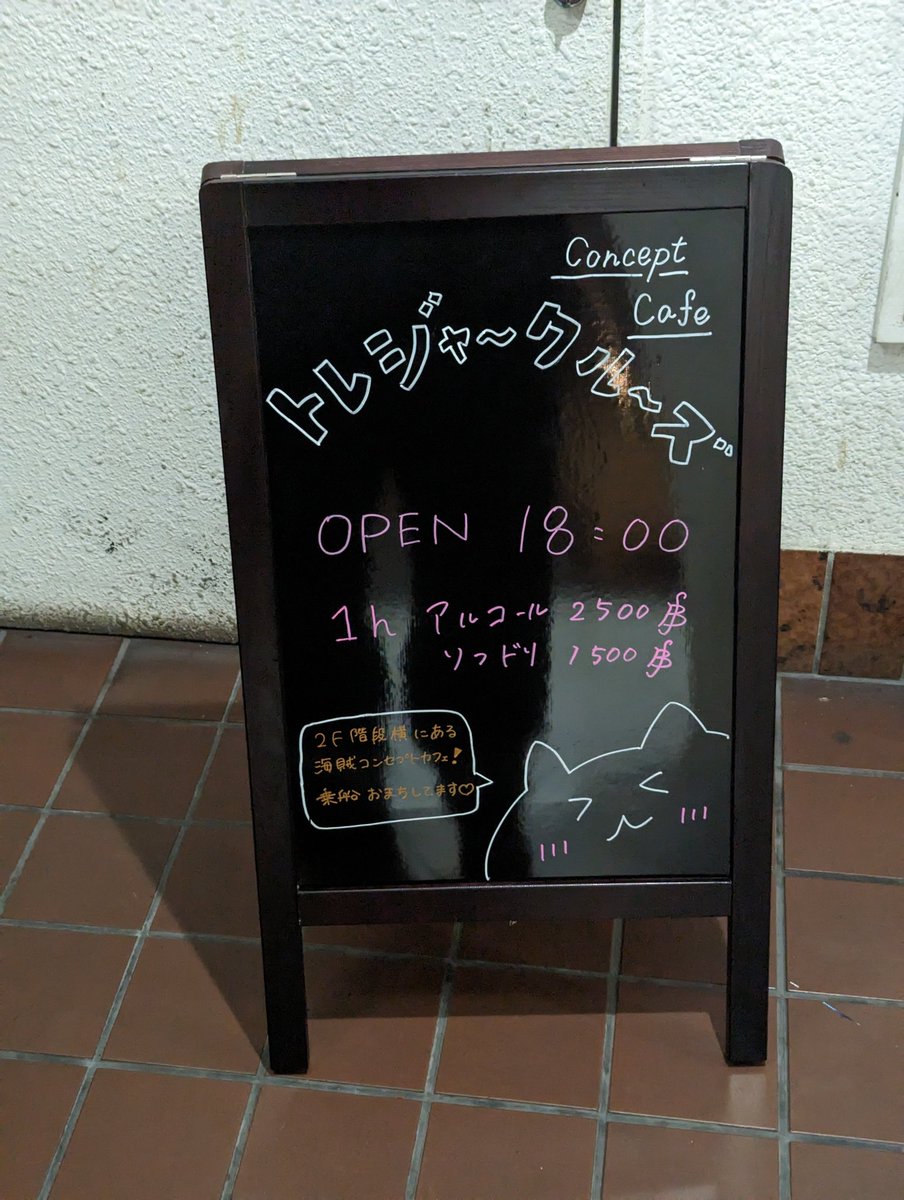 Concept
Cafe
トレジャークルーズ
OPEN 18:00
1h アルコール 2500
ソフドリ 1500
2F 階段横にある
海賊コンセプトカフェ!
乗船おまちしてます♡